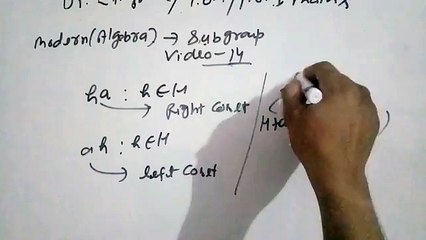 Modern (Algebra) → Subgroup
Video-14
ha : h∈H
→ Right Coset
ah : h∈H
→ left Coset